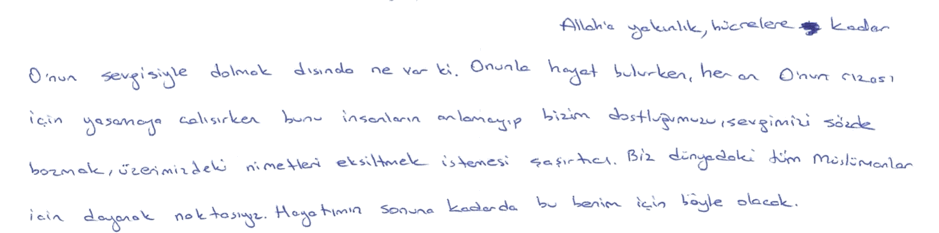 Allah'a yakınlık, hücrelere kadar
O'nun sevgisiyle dolmak dısında ne var ki. Onunla hayat bulurken, her an O'nun rızası
için yasamaya calısırken bunu insanların anlamayıp bizim dostluğumuzu, sevgimizi sözde
bozmak, üzerimizdeki nimetleri eksiltmek istemesi şaşırtıcı. Biz dünyadaki tüm Müslümanlar
icin dayanak noktasıyız. Hayatımın sonuna kadarda bu benim için böyle olacak.